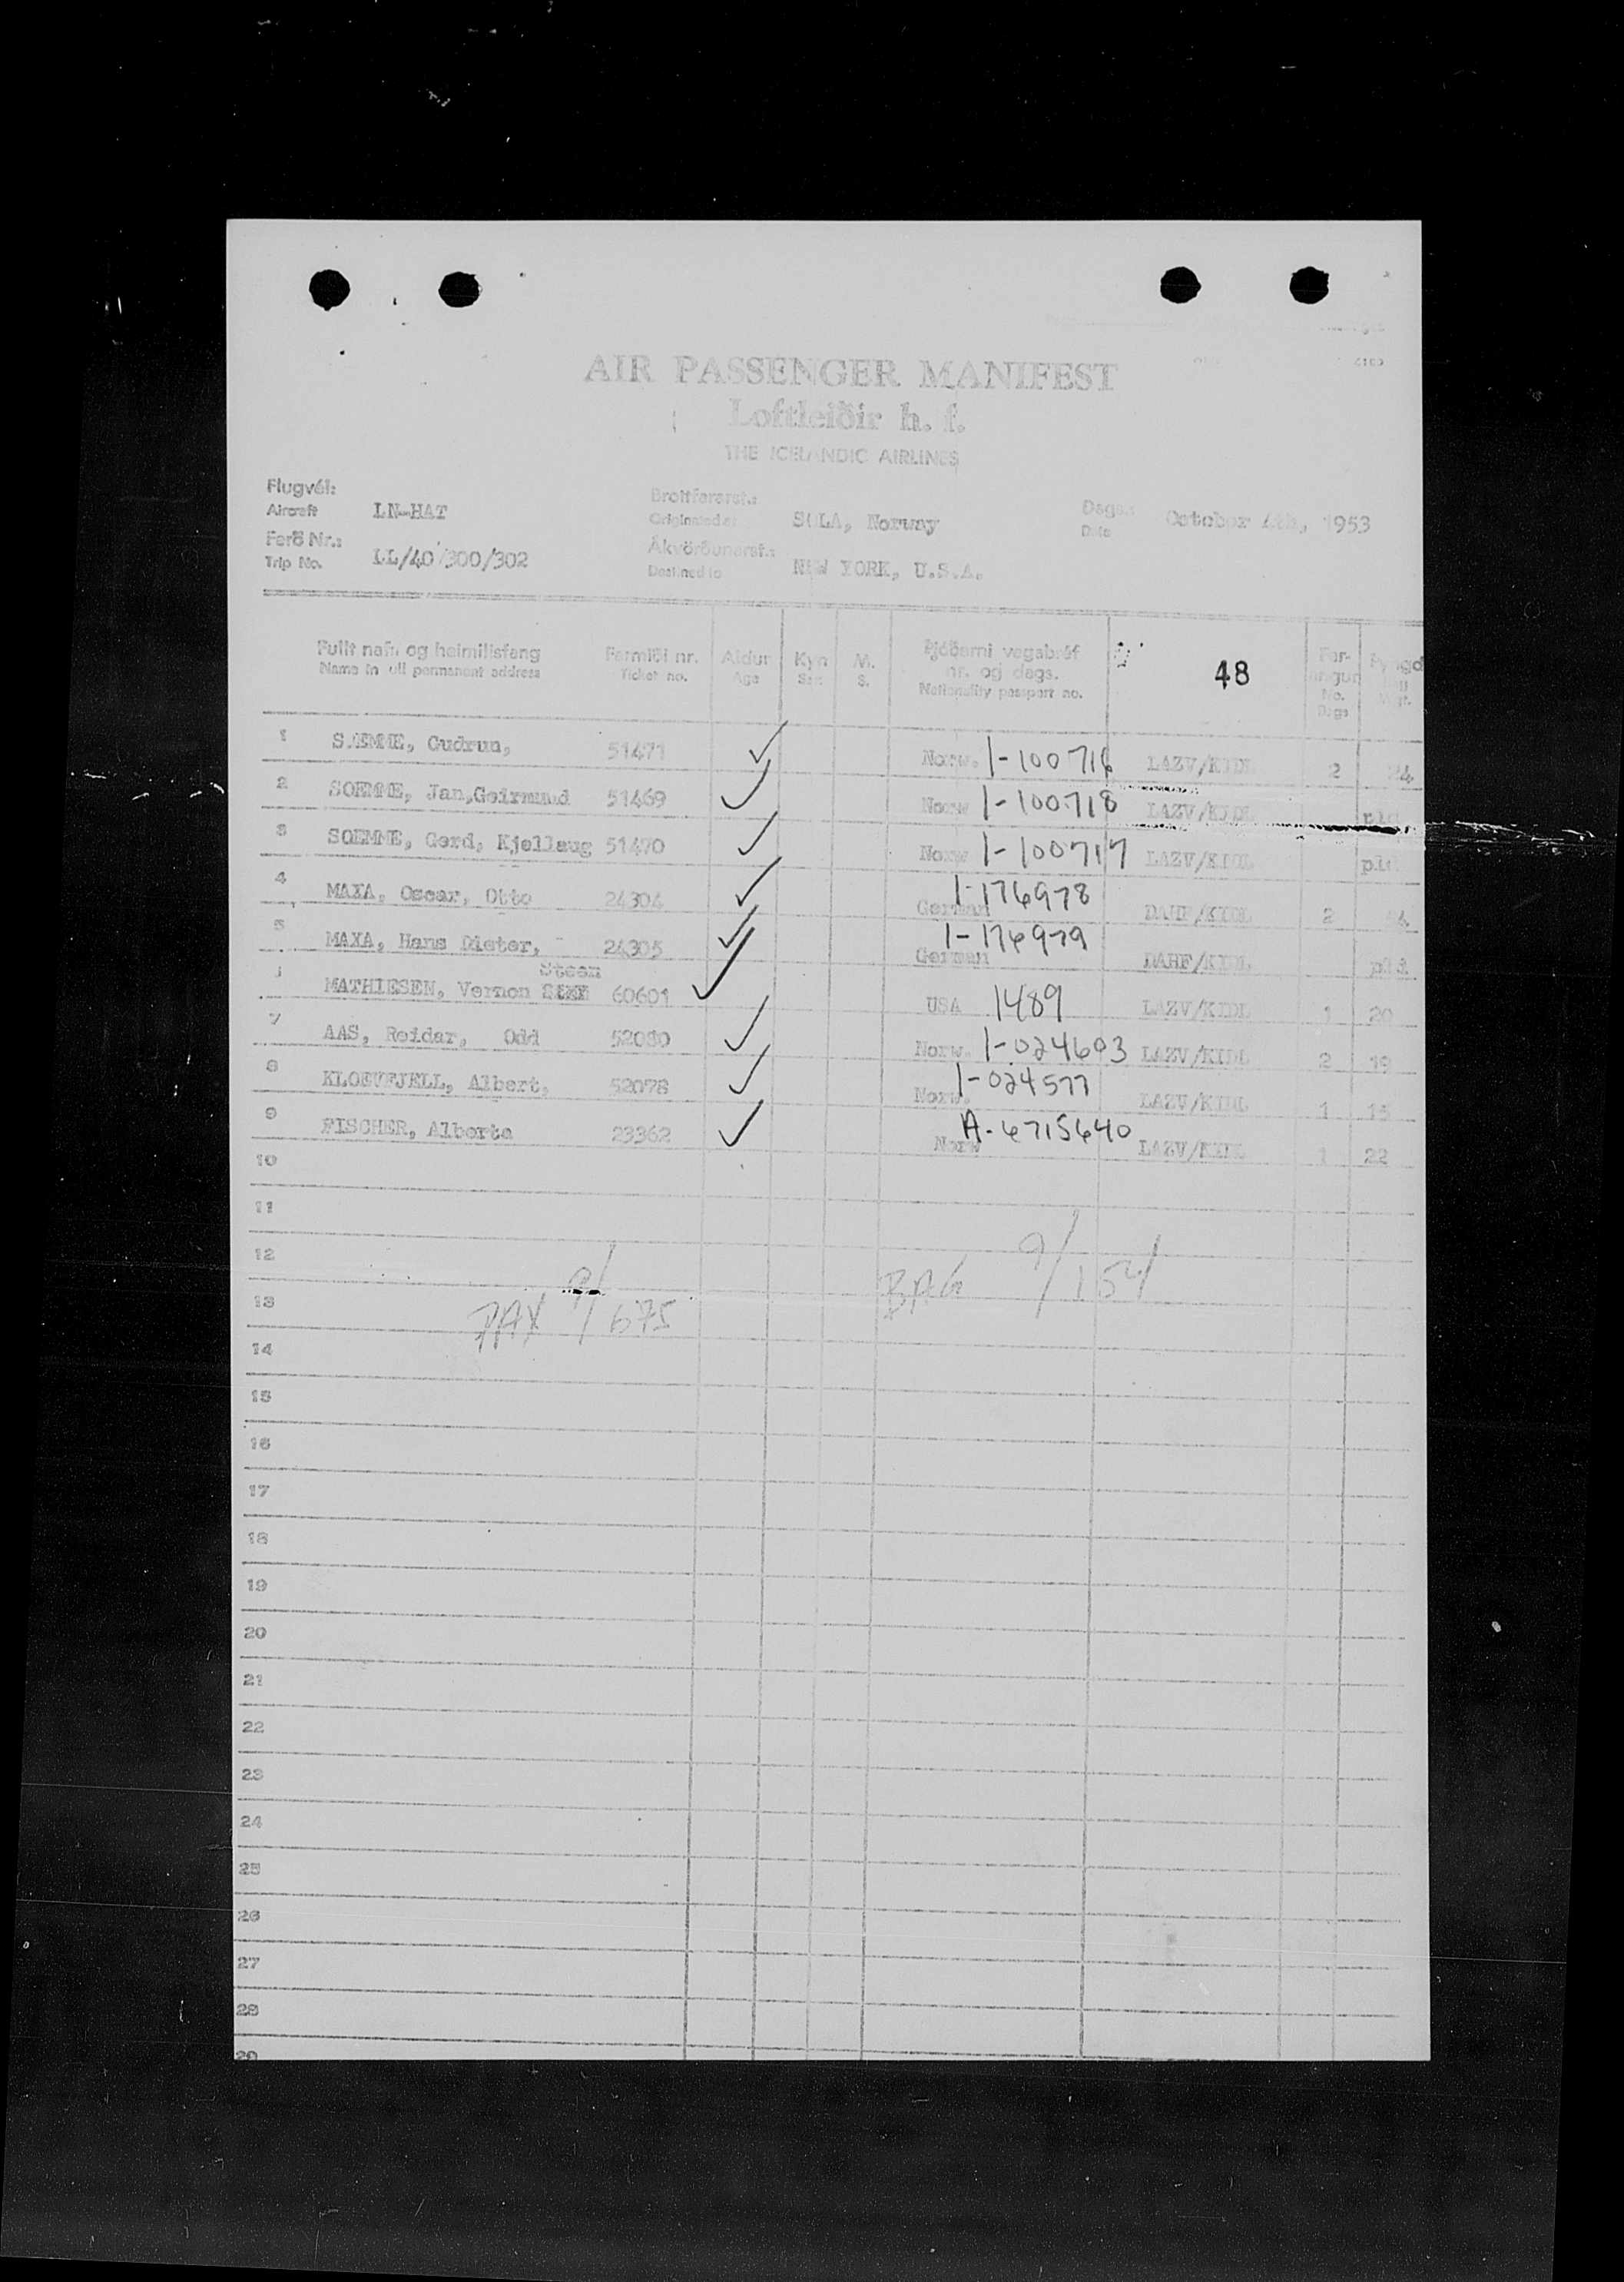 AIR PASSENGER MANIFEST
Loftleiðir h. f.
THE ICELANDIC AIRLINES
Flugvél:
Aircraft LN-HAT
Brottfararst.:
Originated at SOLA, Norway
Dags.:
Date October 4th, 1953
Ferð Nr.:
Trip No. LL/40/300/302
Ákvörðunarst.:
Destined to NEW YORK, U.S.A.
Fullt nafn og heimilisfang
Name in full permanent address
Farmiði nr.
Ticket no.
Aldur
Age
Kyn
Sex
M.
S.
Þjóðerni vegabréf
nr. og dags.
Nationality passport no.
48
Far-
angur
No.
Bags
1 SÆMME, Gudrun, 51471 ✓ Norw. 1-100716 LAZV/KIDL 2 24
2 SOEMME, Jan,Geirmund 51469 ✓ Norw 1-100718 LAZV/KIDL pld
3 SOEMME, Gerd, Kjellaug 51470 ✓ Norw 1-100717 LAZV/KIDL pld
4 MAXA, Oscar, Otto 24304 ✓ German 1-176978 DAHF/KIDL 2
5 MAXA, Hans Dieter, 24305 ✓ German 1-176979 DAHF/KIDL pld
Steen
MATHIESEN, Vernon 60601 ✓ USA 1489 LAZV/KIDL 1 20
7 AAS, Reidar, Odd 52080 ✓ Norw. 1-024603 LAZV/KIDL 2 19
8 KLOEVFJELL, Albert, 52078 ✓ Norw. 1-024577 LAZV/KIDL 1 15
9 FISCHER, Alberte 23362 ✓ Norw A-6715640 LAZV/KIDL 1 22
10
11
12
PAX 9/675 BAG 9/154
13
14
15
16
17
18
19
20
21
22
23
24
25
26
27
28
29